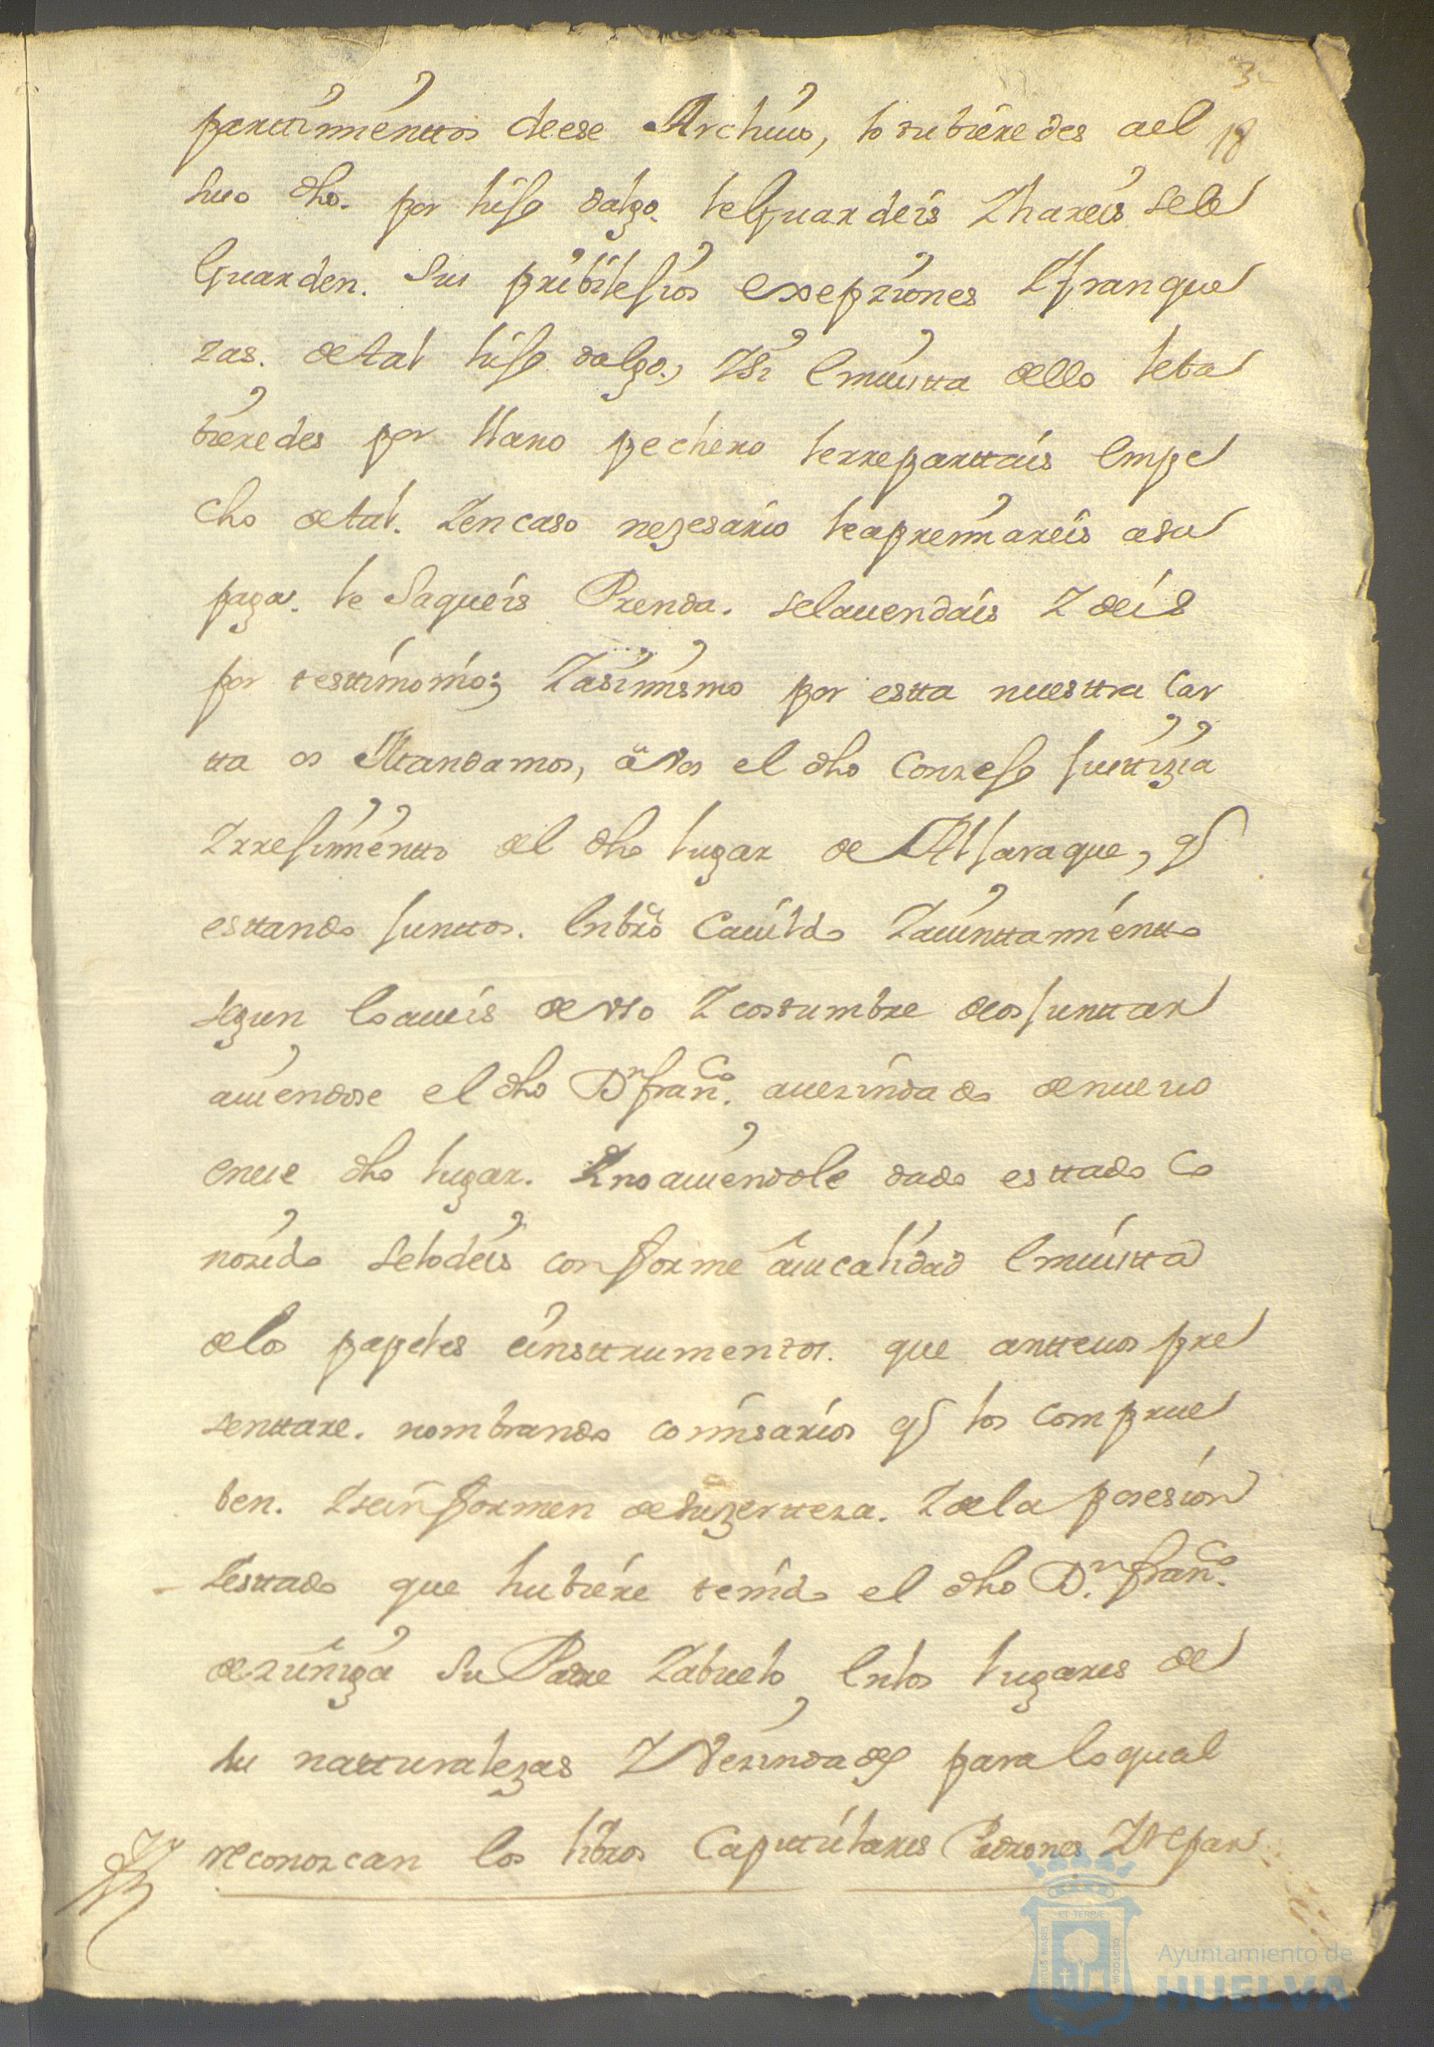 3
18
parttimienttos de ese Archiuo, lo tubieredes ael
suso dho. por hijo dalgo. le Guardeis Y hareis sele
Guarden. Sus pribilejios exsepziones Y franque
zas. de tal hijo dalgo, Y Si En uistta dello le ta
bieredes por llano pechero le rreparttais En pe
cho de tal. Y en caso nezesario le apremiareis a su
paga. le Saqueis Prenda. se la uendais Y deis
por testtimonio; Y asimismo por estta nuesttra Car
tta os Mandamos, a Vos el dho Conzejo Justtizia
Y rrejimientto del dho lugar de Aljaraque, q
esttando Junttos. En bro Cauildo Y aiunttamientto
segun Lo aueis de Vso Y costumbre de os Junttar
auiendose el dho Dn franco. auezindado de nueuo
en ese dho lugar. Y no auiendole dado esttado Co
nozido se lo deis conforme a su calidad En uistta
de los papeles e instrumentos. que antte uos pre
senttare. nombrando comisarios q los comprue
ben. Y se informen de su zertteza. Y de la posesion
Y esttado que hubiere tenido el dho Dn. franco.
de zuñiga su Padre Y abuelo En los lugares de
su natturalezas Y Vezindades para lo qual
reconozcan los libros Capittulares Padrones Y Repar
Ayuntamiento de
HUELVA